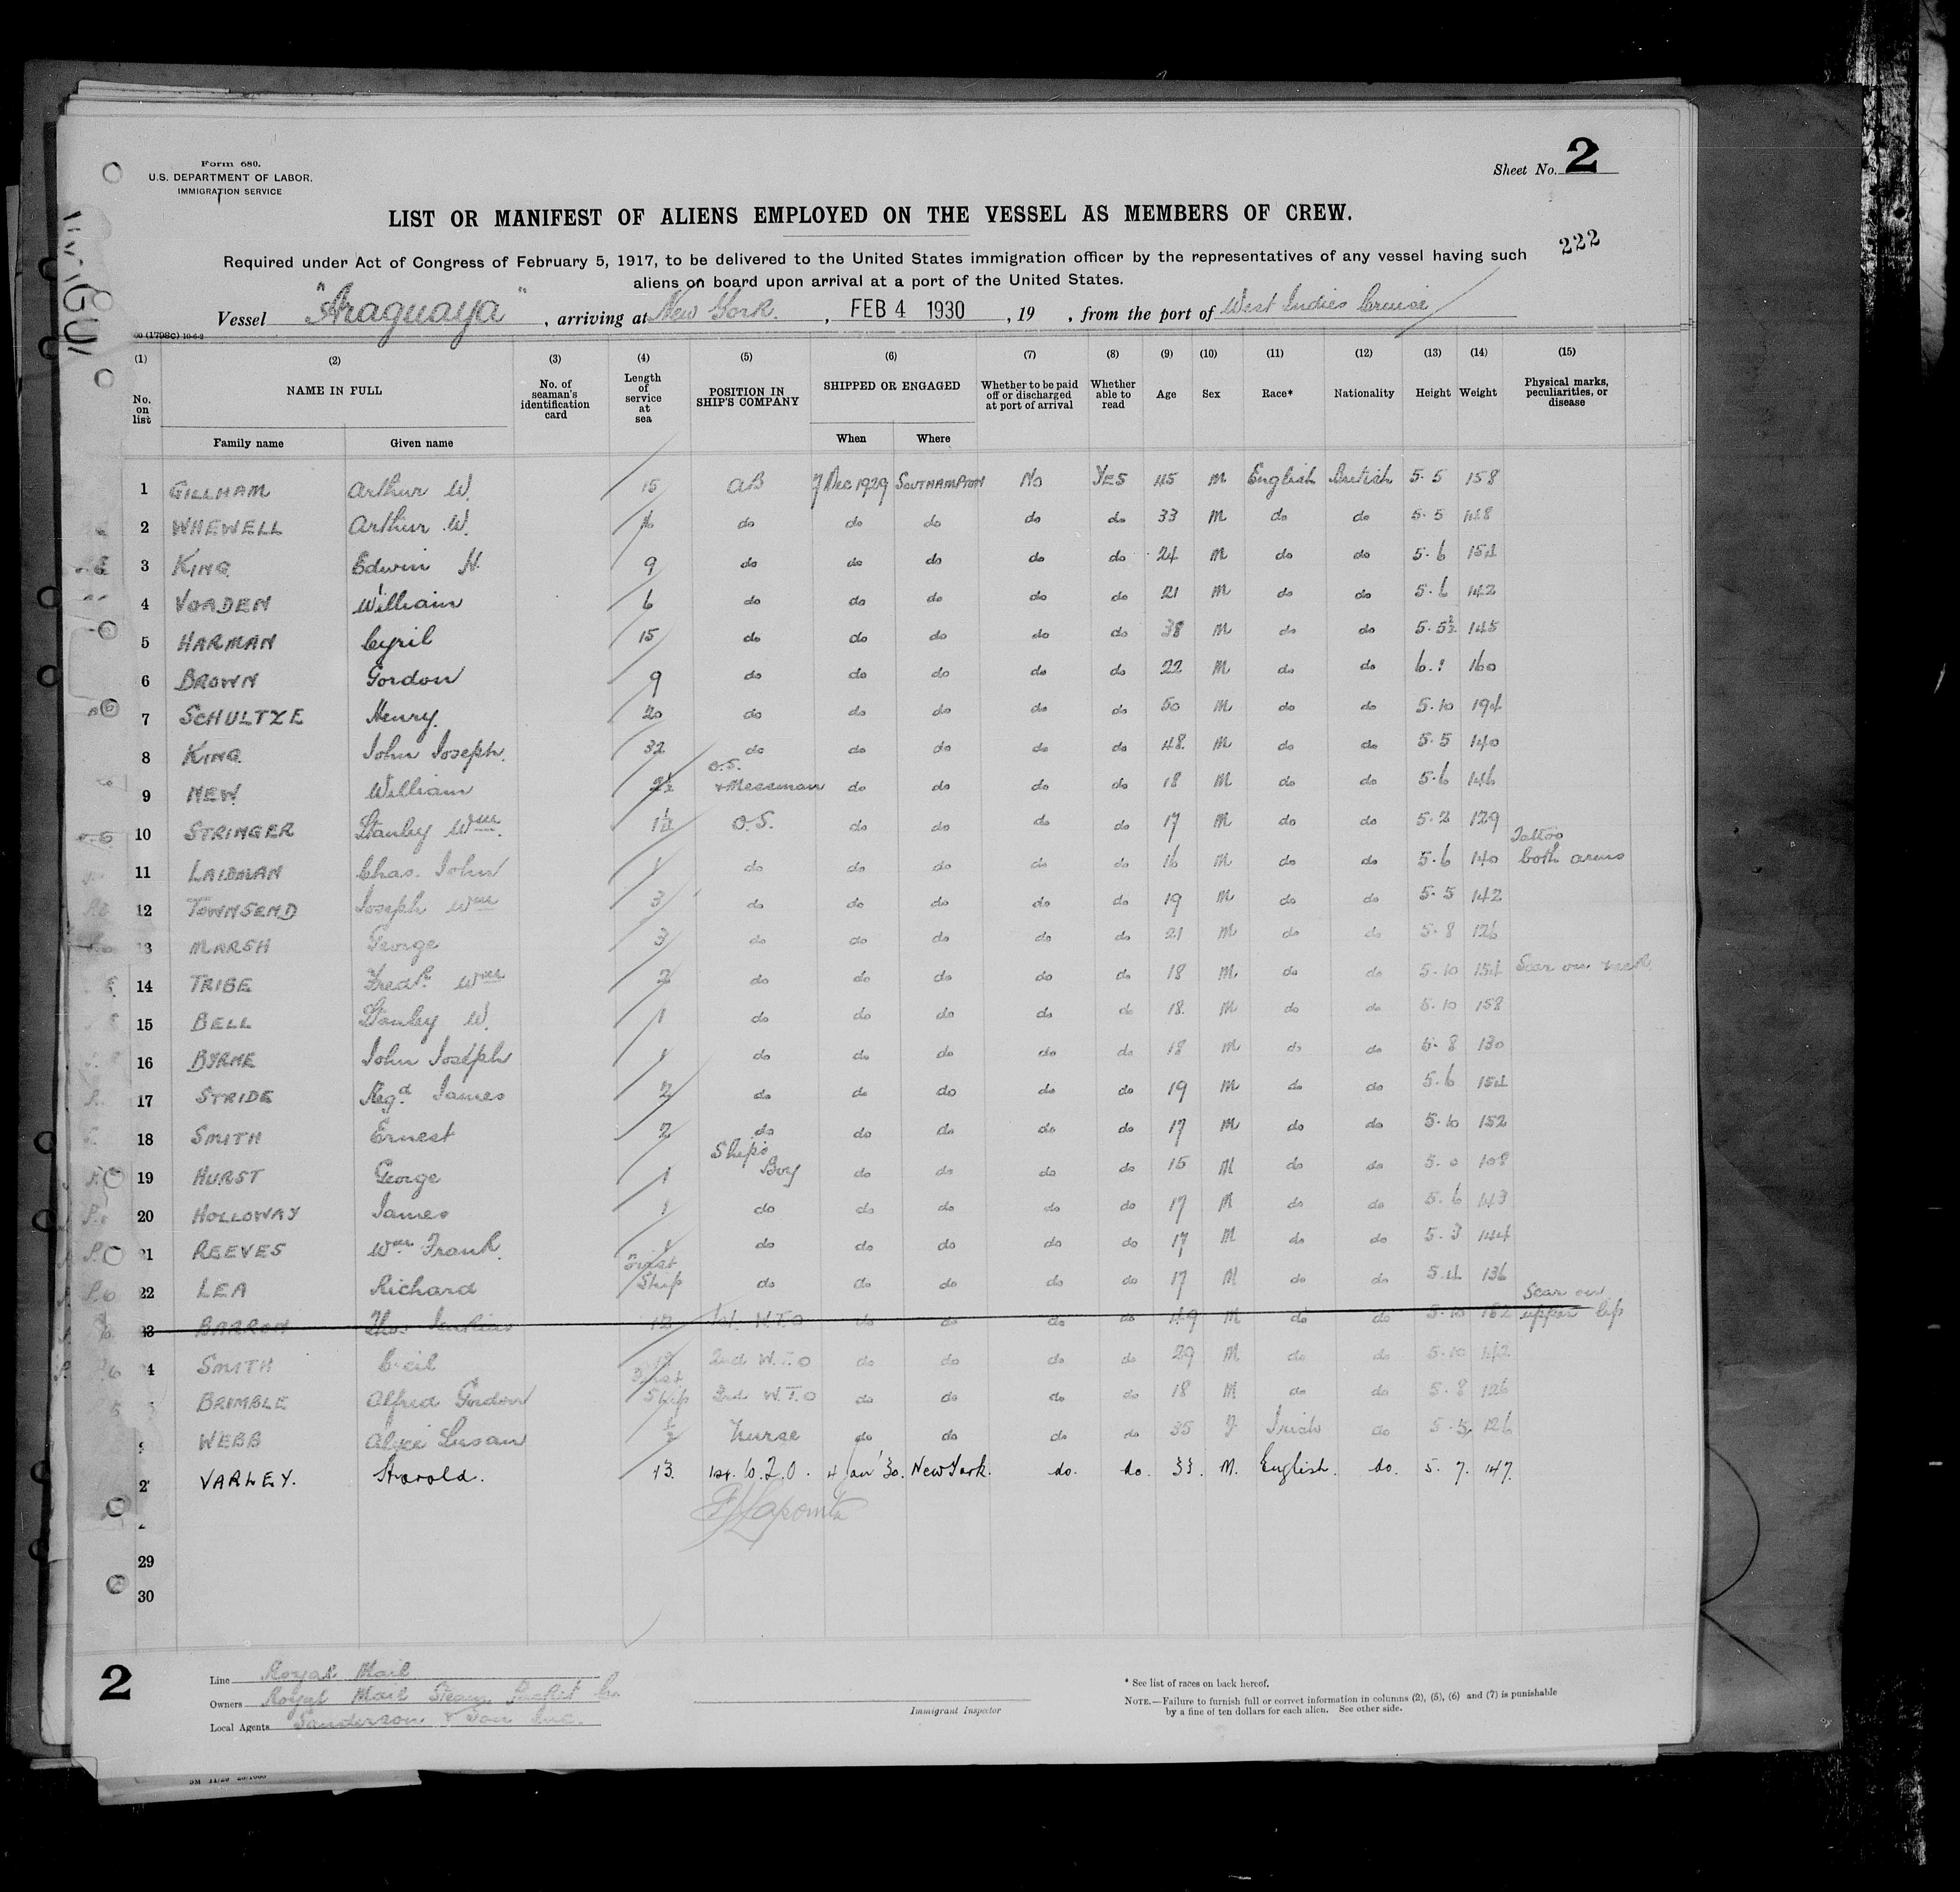 Form 680.
U.S. DEPARTMENT OF LABOR.
IMMIGRATION SERVICE
Sheet No. 2
LIST OR MANIFEST OF ALIENS EMPLOYED ON THE VESSEL AS MEMBERS OF CREW.
222
Required under Act of Congress of February 5, 1917, to be delivered to the United States immigration officer by the representatives of any vessel having such
aliens on board upon arrival at a port of the United States.
Vessel "Araguaya", arriving at New York., FEB 4 1930, 19 , from the port of West Indies Cruise
(1) (2) (3) (4) (5) (6) (7) (8) (9) (10) (11) (12) (13) (14) (15)
No. on list NAME IN FULL No. of seaman's identification card Length of service at sea POSITION IN SHIP'S COMPANY SHIPPED OR ENGAGED Whether to be paid off or discharged at port of arrival Whether able to read Age Sex Race* Nationality Height Weight Physical marks, peculiarities, or disease
Family name Given name When Where
1 GILLHAM Arthur W. 15 AB 7 Dec 1929 SOUTHAMPTON No YES 45 M English British 5.5 158
2 WHEWELL Arthur W. do do do do do 33 M do do 5.5 148
3 KING. Edwin H. 9 do do do do do 24 M do do 5.6 154
4 VOADEN William 6 do do do do do 21 M do do 5.6 142
5 HARMAN Cyril 15 do do do do do 38 M do do 5.5½ 145
6 BROWN Gordon 9 do do do do do 22 M do do 160
7 SCHULTZE Henry. 20 do do do do do 50 M do do 5.10 194
8 KING. John Joseph. 32 do do do do do 48. M do do 5.5 140
9 NEW William 2½ O.S. + Messman do do do do 18 M do do 5.6 146
10 STRINGER Stanley Wm. 1½ O.S. do do do do 17 M do do 5.2 129
11 LAIDMAN Chas. John 1 do do do do do 16 M do do 5.6 140 Tattoo both arms
12 TOWNSEND Joseph Wm 3 do do do do do 19 M do do 5.5 142
13 MARSH George 3 do do do do do 21 M do do 5.8 126
14 TRIBE Fredk. Wm 2 do do do do do 18 M do do 5.10 154 Scar on neck
15 BELL Stanley W. 1 do do do do do 18. M do do 5.10 158
16 BYRNE John Joseph 1 do do do do do 18 M do do 5.8 130
17 STRIDE Regd. James 2 do do do do do 19 M do do 5.6 154
18 SMITH Ernest 2 do do do do do 17 M do do 5.10 152
19 HURST George 1 Ship's Boy do do do do 15 M do do 5.0 108
20 HOLLOWAY James 1 do do do do do 17 M do do 5.6 143
21 REEVES Wm Frank. 1 do do do do do 17 M do do 5.3 144
22 LEA Richard First Ship do do do do do 17 M do do 5.4 136
23 BARRON Thos 1st. W.T.O do do do do 49 M do do 5.10 182 Scar on upper lip
4 SMITH Cecil 2nd W.T.O do do do do 29 M do do 5.10 142
BRIMBLE Alfred Gordon First Ship 3rd W.T.O do do do do 18 M do do 5.8 126
WEBB Alice Susan ½ Nurse do do do do 35 F Irish do 5.5 126
2 VARLEY. Harold. 13. 1st. W.T.O. 4 Jan '30. New York. do. do. 33. M. English. do. 5.7. 147.
29
30
2
Line Royal Mail
Owners Royal Mail Steam Packet Co.
Local Agents Sanderson & Son Inc.
Immigrant Inspector
* See list of races on back hereof.
NOTE.—Failure to furnish full or correct information in columns (2), (5), (6) and (7) is punishable
by a fine of ten dollars for each alien. See other side.